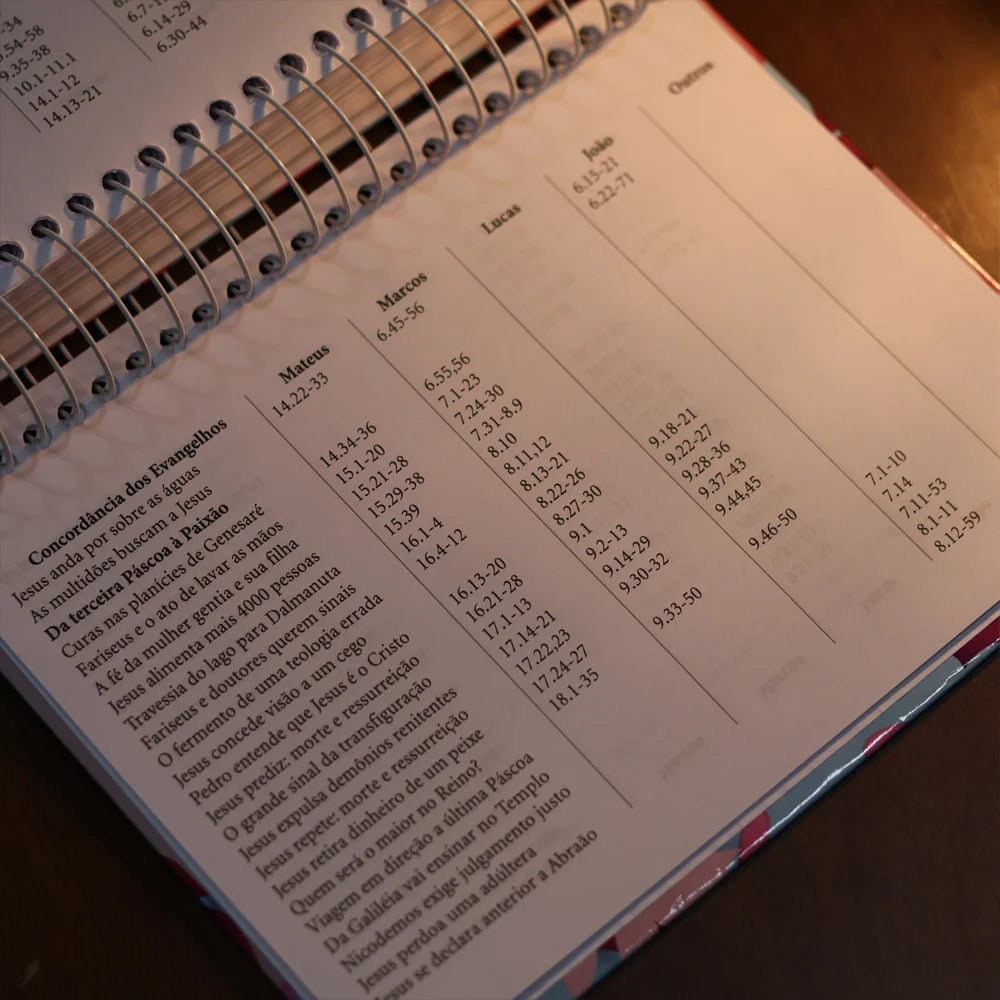 -34
.54-58
9.35-38
10.1-11.1
14.1-12
14.13-21
6.14-29
6.30-44
Concordância dos Evangelhos Mateus Marcos Lucas João Outros
Jesus anda por sobre as águas 14.22-33 6.45-56 6.15-21
As multidões buscam a Jesus 6.22-71
Da terceira Páscoa à Paixão
Curas nas planícies de Genesaré 14.34-36 6.55,56
Fariseus e o ato de lavar as mãos 15.1-20 7.1-23
A fé da mulher gentia e sua filha 15.21-28 7.24-30
Jesus alimenta mais 4000 pessoas 15.29-38 7.31-8.9
Travessia do lago para Dalmanuta 15.39 8.10
Fariseus e doutores querem sinais 16.1-4 8.11,12
O fermento de uma teologia errada 16.4-12 8.13-21
Jesus concede visão a um cego 8.22-26
Pedro entende que Jesus é o Cristo 16.13-20 8.27-30 9.18-21
Jesus prediz: morte e ressurreição 16.21-28 9.1 9.22-27
O grande sinal da transfiguração 17.1-13 9.2-13 9.28-36
Jesus expulsa demônios renitentes 17.14-21 9.14-29 9.37-43
Jesus repete: morte e ressurreição 17.22,23 9.30-32 9.44,45
Jesus retira dinheiro de um peixe 17.24-27
Quem será o maior no Reino? 18.1-35 9.33-50 9.46-50
Viagem em direção a última Páscoa 7.1-10
Da Galiléia vai ensinar no Templo 7.14
Nicodemos exige julgamento justo 7.11-53
Jesus perdoa uma adúltera 8.1-11
Jesus se declara anterior a Abraão 8.12-59